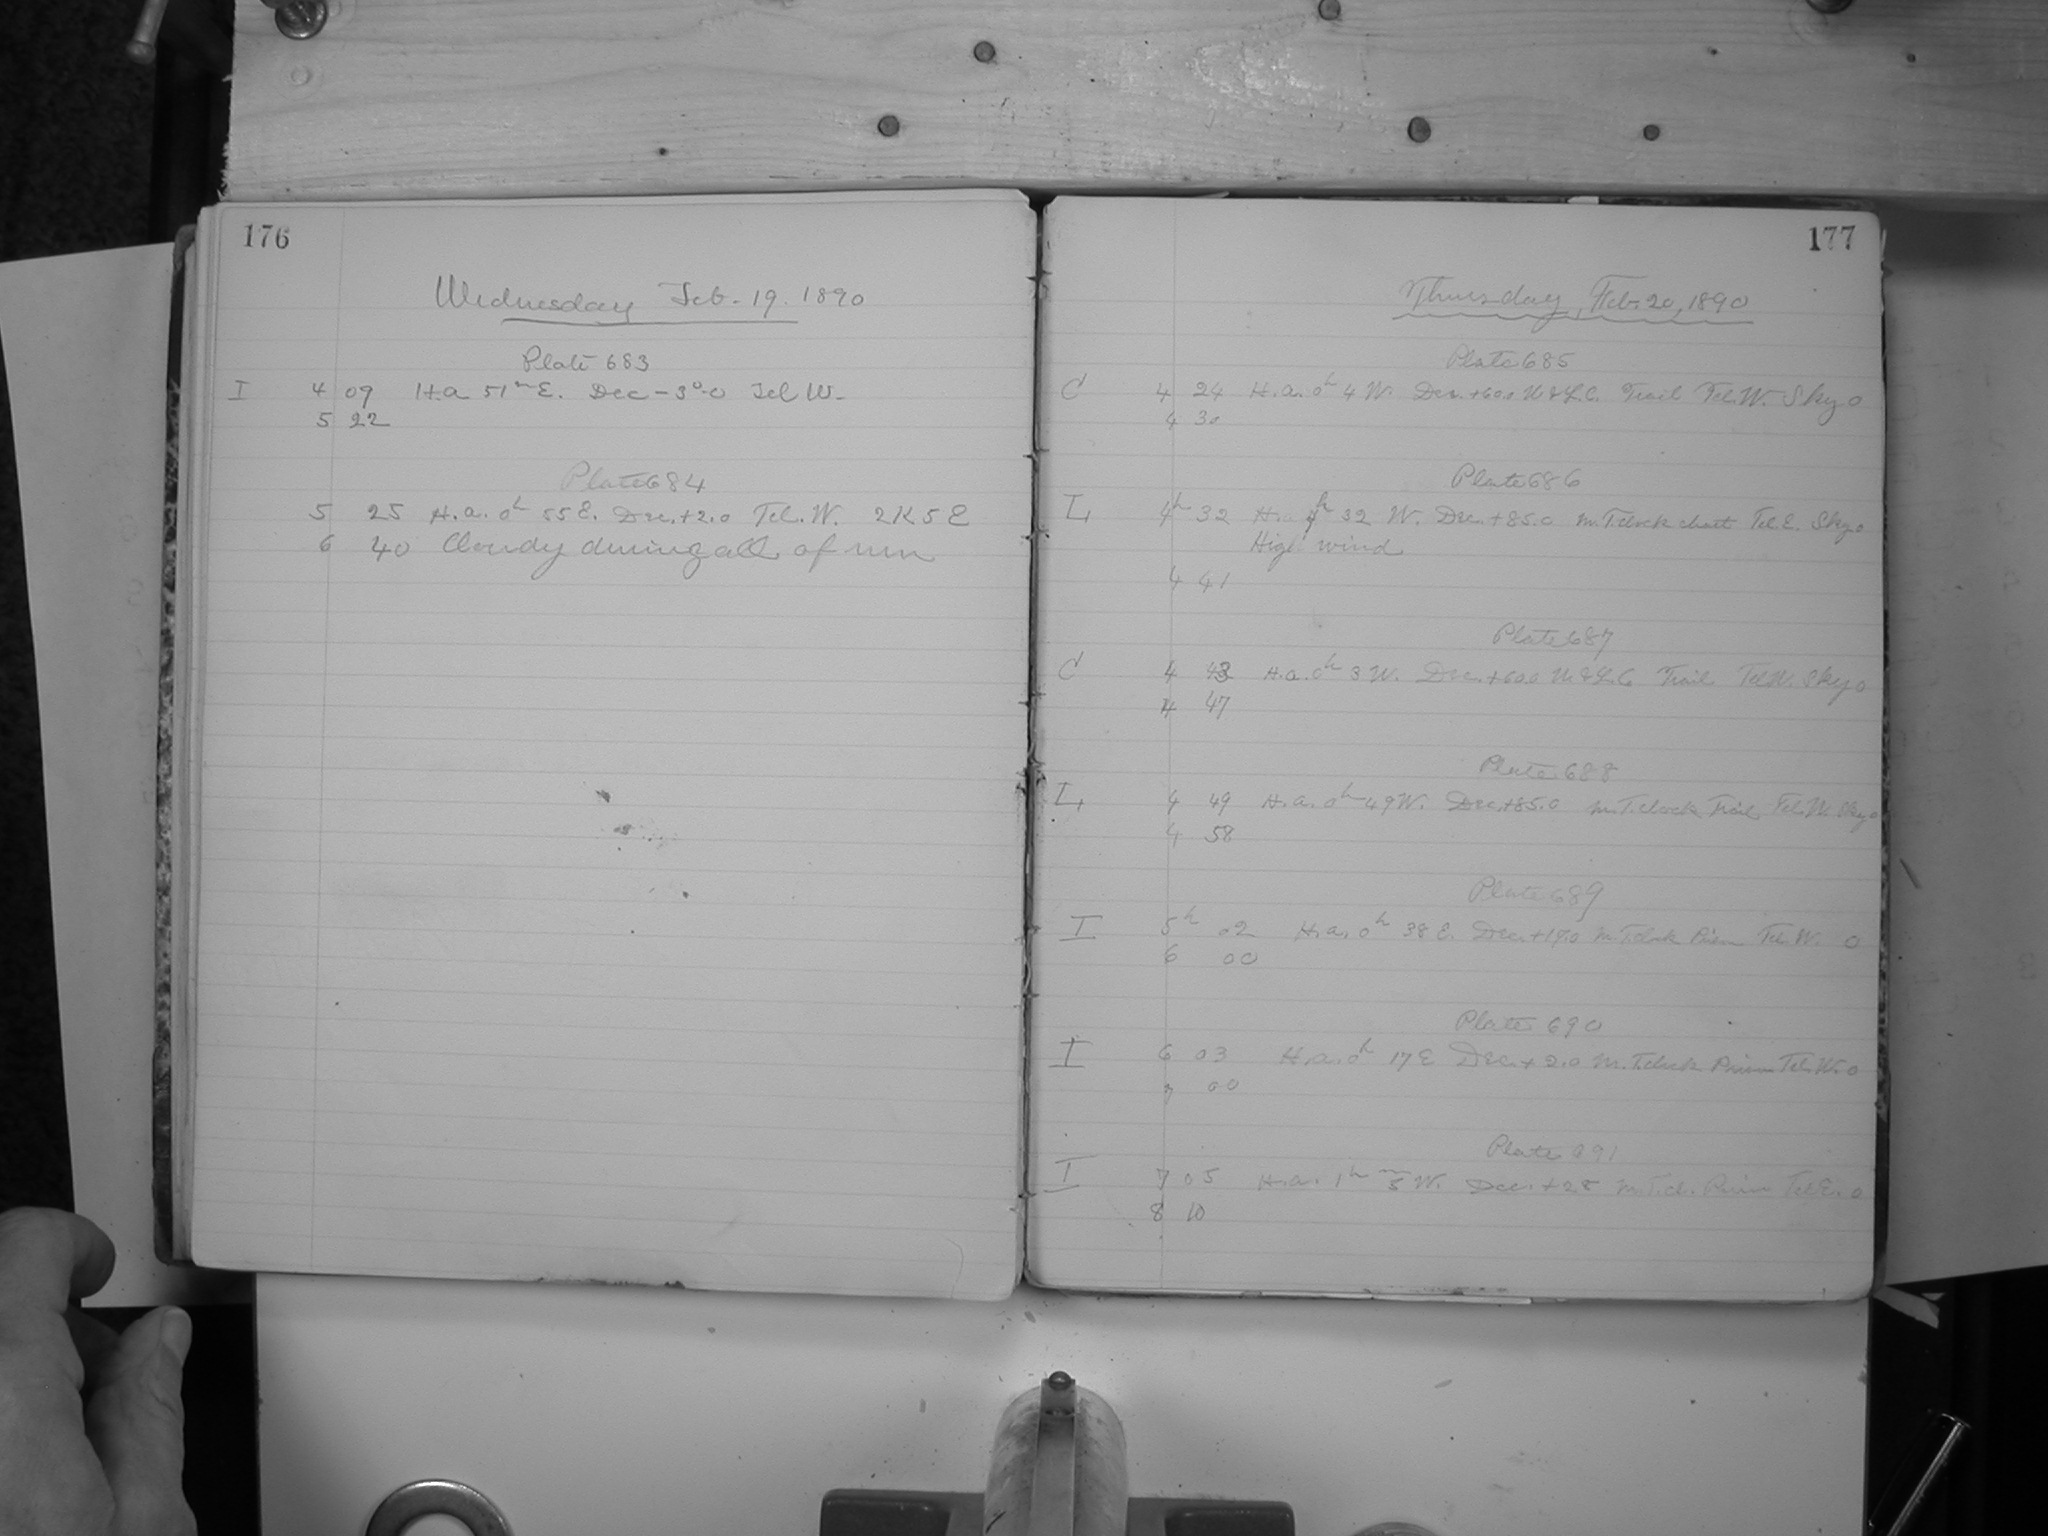 176
Wednesday Feb. 19. 1890
Plate 683
I 4 09 H.a 51m E. Dec -3°.0 Tel W.
5 22
Plate 684
5 25 H.a. 0h 55 E. Dec. +2.0 Tel. W. 2K5E
6 40 Cloudy during all of run
177
Thursday, Feb. 20, 1890
Plate 685
C 4 24 H.a. 0h 4 W. Dec. +60.0 U & L.C. Trail Tel. W. Sky 0
4 30
Plate 686
I, 4h 32 H.a. 32 W. Dec. +85.0 M.T.clock chart Tel. E. Sky 0
High wind
4 41
Plate 687
C 4 43 H.a. 0h 3 W. Dec. +60.0 U & L.C Trail Tel W. Sky 0
4 47
Plate 688
I, 4 49 H.a. 0h 49 W. Dec. +85.0 M.T.clock Trail Tel. W. Sky 0
4 58
Plate 689
I 5h 02 H.a. 0h 38 E. Dec. M.T.clock Prism Tel. W. 0
6 00
Plate 690
I 6 03 H.a. 0h 17 E Dec. +2.0 M.T.clock Prism Tel. W. 0
7 00
Plate 691
I 7 05 H.a. 1h 5m W. Dec. M.T.cl. Prism Tel E. 0
8 10